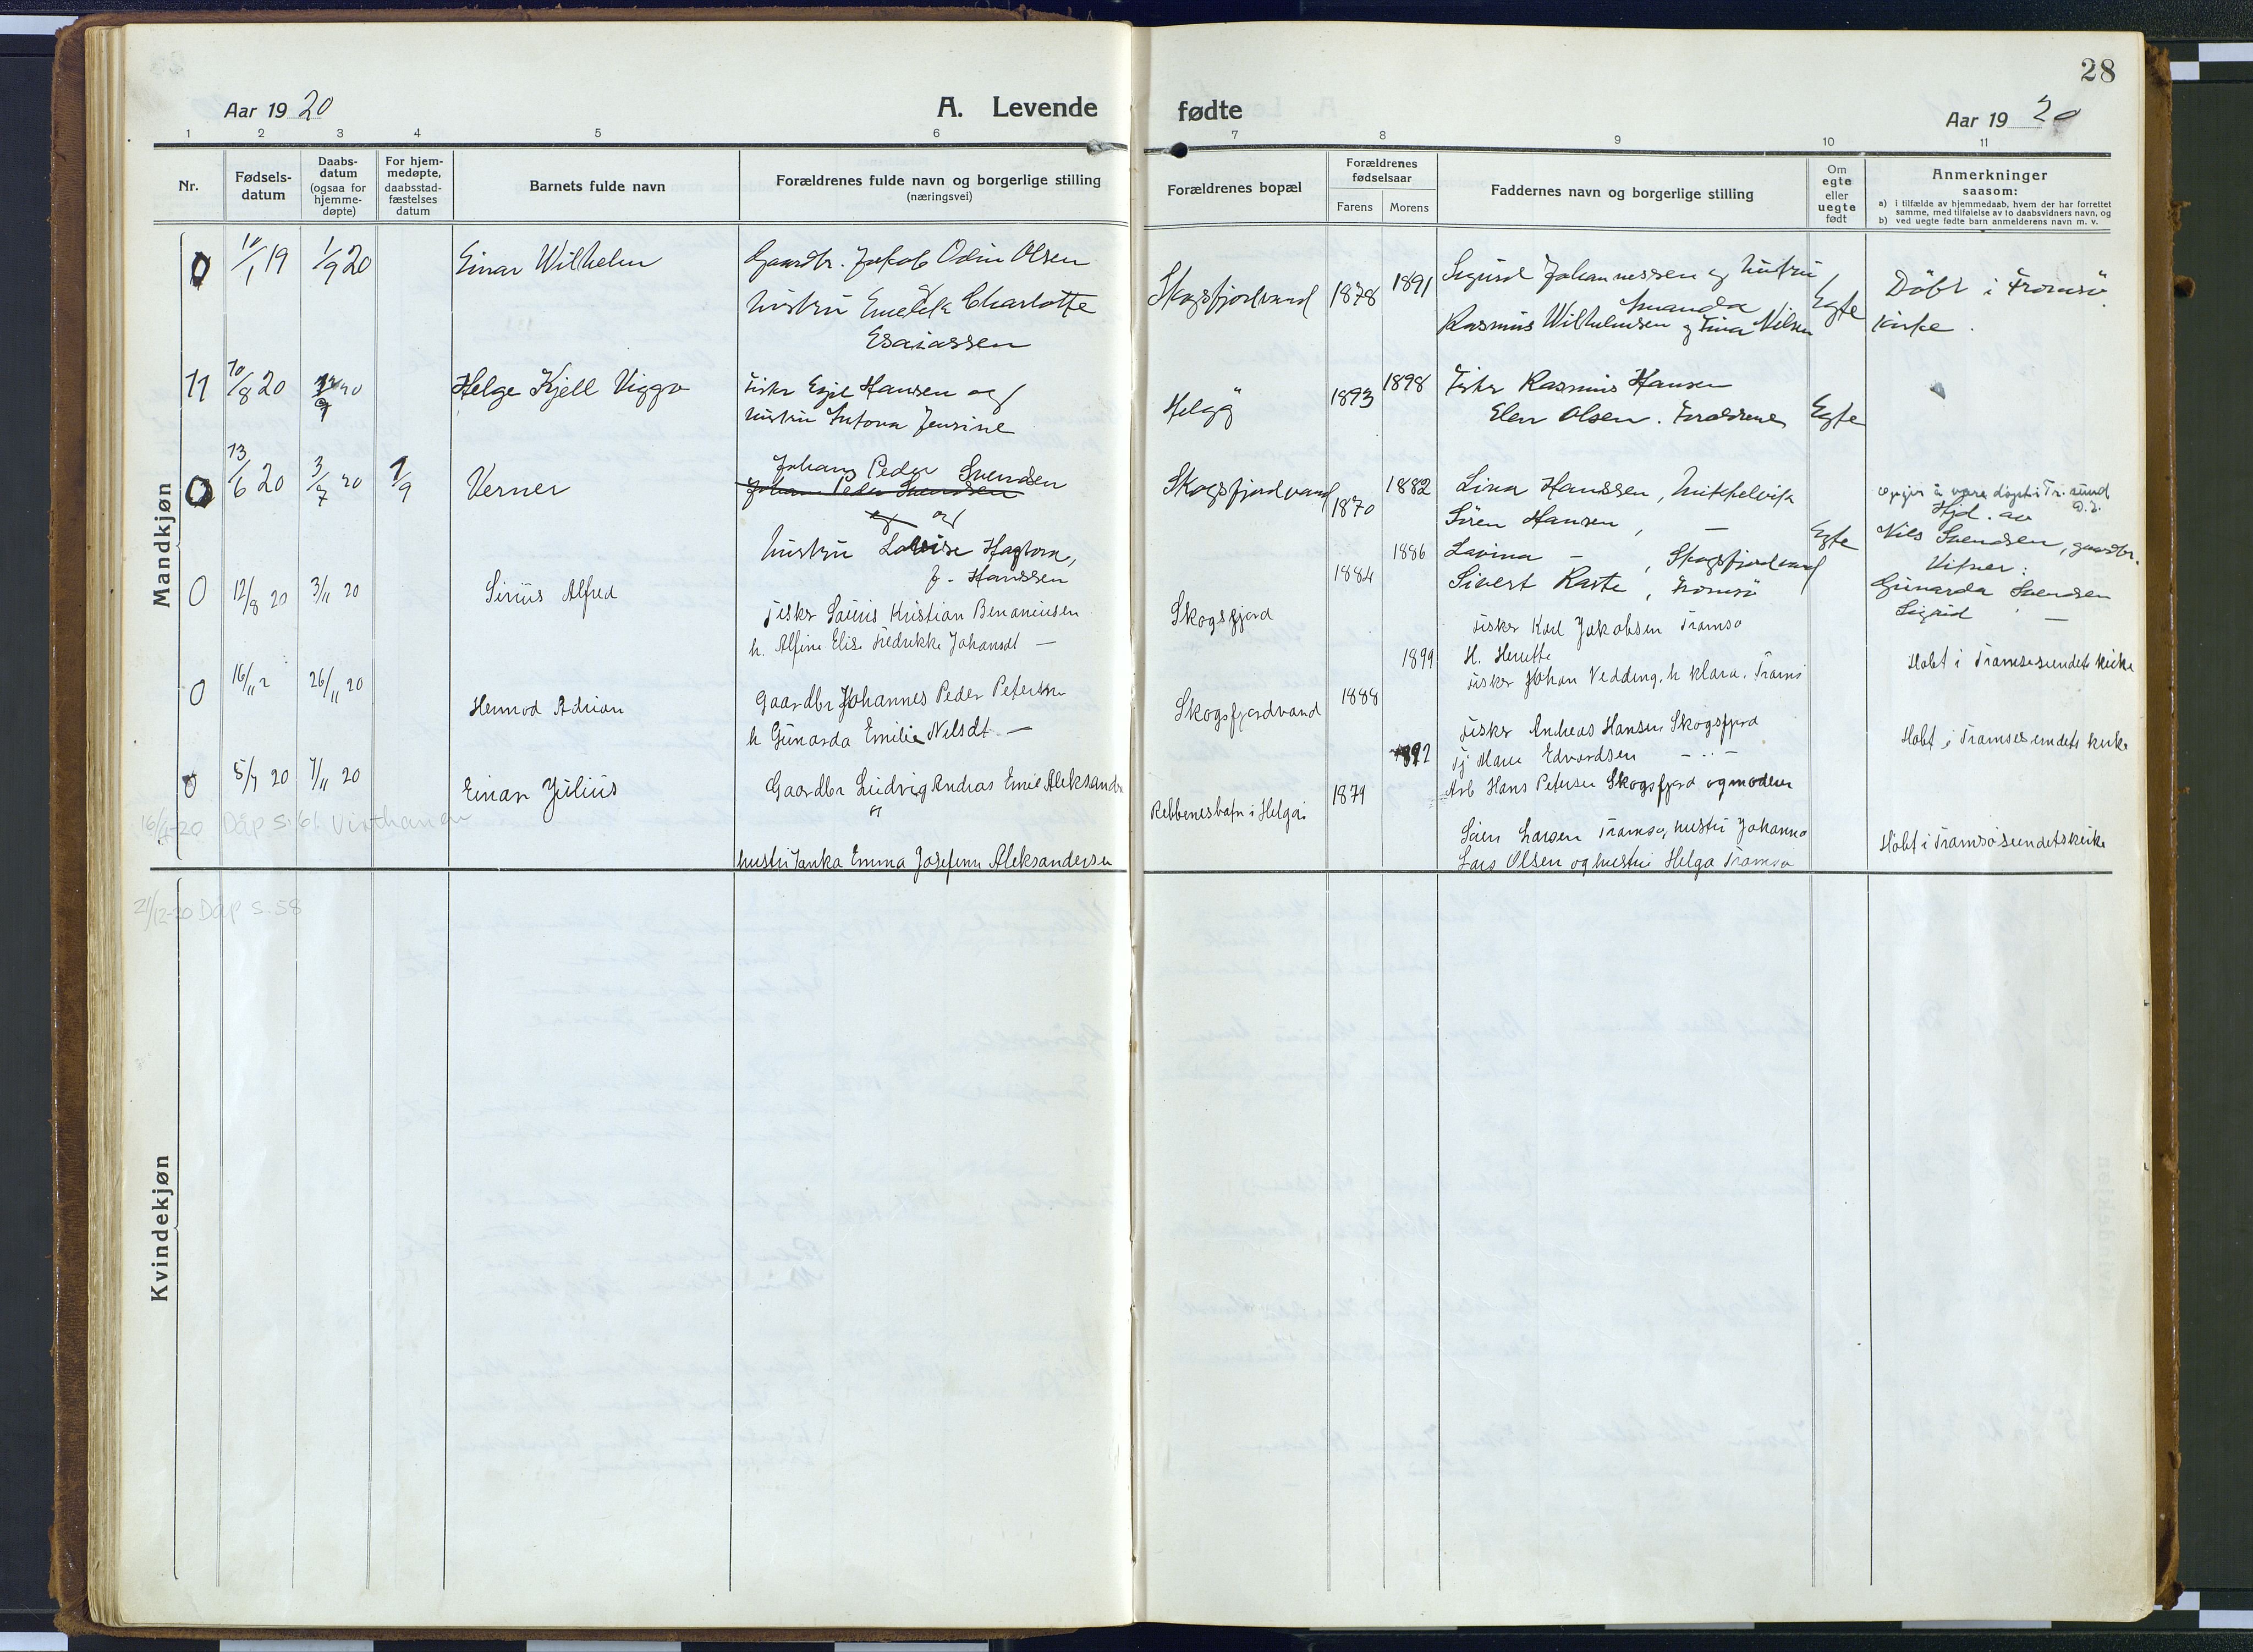 28
Aar 1920
A. Levende fødte
Aar 1920
1 2 3 4 5 6 7 8 9 10 11
Nr.
Fødsels-
datum
Daabs-
datum
(ogsaa for
hjemme-
døpte)
For hjem-
medøpte,
daabsstad-
fæstelses
datum
Barnets fulde navn
Forældrenes fulde navn og borgerlige stilling
(næringsvei)
Forældrenes bopæl
Forældrenes
fødselsaar
Farens Morens
Faddernes navn og borgerlige stilling
Om
egte
eller
uegte
født
Anmerkninger
saasom:
a) i tilfælde av hjemmedaab, hvem der har forrettet
samme, med tilføielse av to daabsvidners navn, og
b) ved uegte fødte barn anmelderens navn m. v.
Mandkjøn
0 10/1 19 1/9 20 Einar Wilhelm
Gaardbr. Jakob Odin Olsen
hustru Charlotte
Esaiassen
Skogsfjordvand 1878 1891
Sigurd Johannessen og hustru
Rasmus Wilhelmsen og Tina Nilsen
Egte
Døbt i Tromsø
kirke.
11 10/8 20 Helge Kjell Viggo
Fisker Egil Hansen og
hustru Antona Jensine
Helgø 1893 1898
Fisker Rasmus Hansen
Elen Olsen. Forældrene
Egte
0 13/6 20 3/7 20 1/9 Verner
Johans Peder Svendsen
Johan Peder Svendsen
og og
hustru Lovise Hagtora,
J. Hanssen
Skogsfjordvand 1870 1882
Lina Hanssen, Mikkelvik
Søren Hansen, —
Lavina —, Skogsfjordvand
Sivert Raste, Tromsø
Egte
opgir å være døpt i Tr. sund
Hjd. av
Nils Svendsen, gaardbr.
Vitner:
Gunarda Svendsen
Sigrid —
0 12/8 20 3/11 20 Sirius Alfred
Fisker Saurus Kristian Benoniusen
h. Alfine Elise Fredrikke Johansdt —
Skogsfjord 1884 1886
Fisker Karl Jakobsen Tromsø
H. Henette
Fisker Johan Vedding, h klara. Tromsø
Høbt i Tromsøsundets kirke
0 16/11 2 26/11 20 Hermod Adrian
Gaardbr Johannes Peder Petersen
h Gunarda Emilie Nilsdt —
Skogsfjordvand 1888 1899
Fisker Andreas Hansen Skogsfjord
Tj Marie Edvardsen — .. —
Arb Hans Petersen Skogsfjord og moderen
Høbt i Tromsøsundets kirke
0 5/7 20 7/11 20 Einar Julius
Gaardbr Ludvig Andreas Emil Aleksander
hustru Janka Emma Josefine Aleksandersen
Rebbenesbotn i Helgøi 1879 1892
Søren Larsen Tromsø, hustru Johanna
Lars Olsen og hustru Helga Tromsø
Høbt i Tromsøsundets kirke
16/4-20 Dåp s. 61
21/12-20 Dåp s. 58
Kvindekjøn